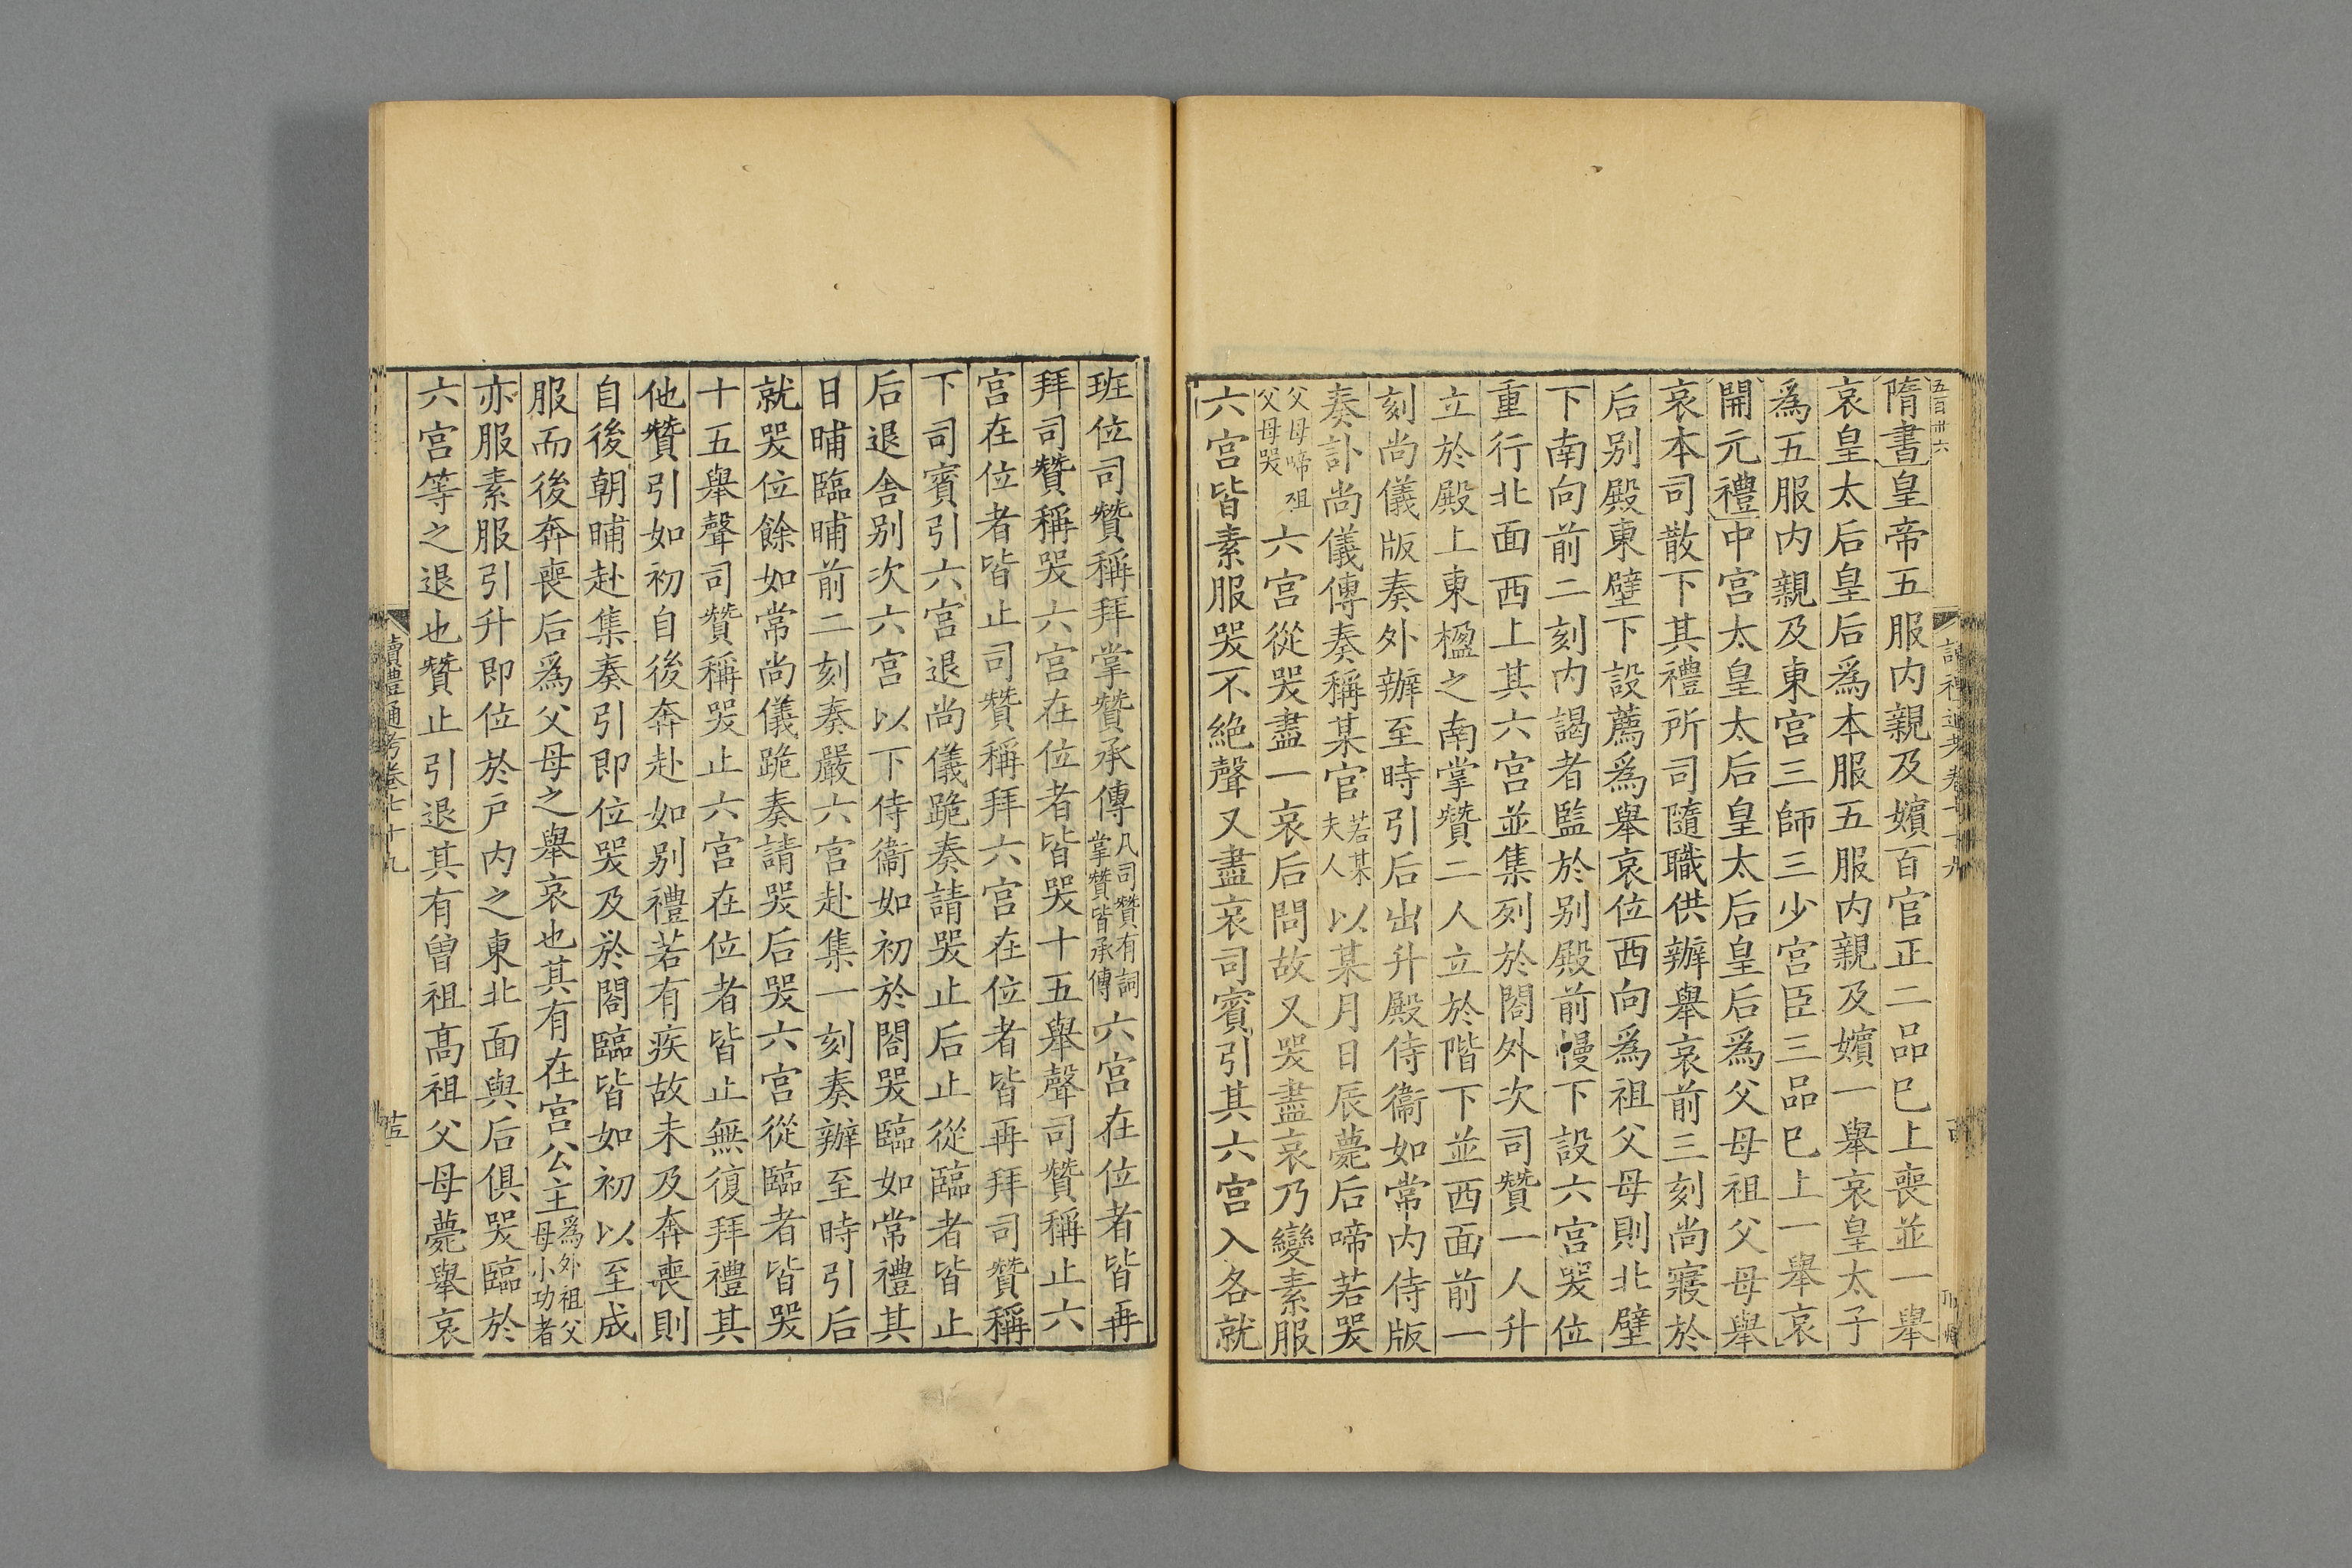 五百卅六
隋書皇帝五服内親及嬪百官正二品巳上喪並一舉
哀皇太后皇后爲本服五服内親及嬪一舉哀皇太子
爲五服内親及東宮三師三少宮臣三品巳上一舉哀
開元禮中宮太皇太后皇太后皇后爲父母祖父母舉
哀本司散下其禮所司隨職供辦舉哀前三刻尚寢於
后别殿東壁下設薦爲舉哀位西向爲祖父母則北壁
下南向前二刻内謁者監於别殿前幔下設六宮哭位
重行北面西上其六宮並集列於閤外次司贊一人升
立於殿上東楹之南掌贊二人立於階下並西面前一
刻尚儀版奏外辦至時引后出升殿侍衞如常内侍版
奏訃尚儀傳奏稱某官若某夫人以某月日辰薨后啼若哭
父母啼祖父母哭六宮從哭盡一哀后問故又哭盡哀乃變素服
六宮皆素服哭不絶聲又盡哀司賓引其六宮入各就
班位司贊稱拜掌贊承傳凡司贊有詞掌贊皆承傳六宮在位者皆再
拜司贊稱哭六宮在位者皆哭十五舉聲司贊稱止六
宮在位者皆止司贊稱拜六宮在位者皆再拜司贊稱
下司賓引六宮退尚儀跪奏請哭止后止從臨者皆止
后退舍别次六宮以下侍衞如初於閤哭臨如常禮其
日晡臨晡前二刻奏嚴六宮赴集一刻奏辦至時引后
就哭位餘如常尚儀跪奏請哭后哭六宮從臨者皆哭
十五舉聲司贊稱哭止六宮在位者皆止無復拜禮其
他贊引如初自後奔赴如别禮若有疾故未及奔喪則
自後朝晡赴集奏引即位哭及於閤臨皆如初以至成
服而後奔喪后爲父母之舉哀也其有在宮公主爲外祖父母小功者
亦服素服引升即位於戶内之東北面與后俱哭臨於
六宮等之退也贊止引退其有曾祖高祖父母薨舉哀
讀禮通考卷七十九